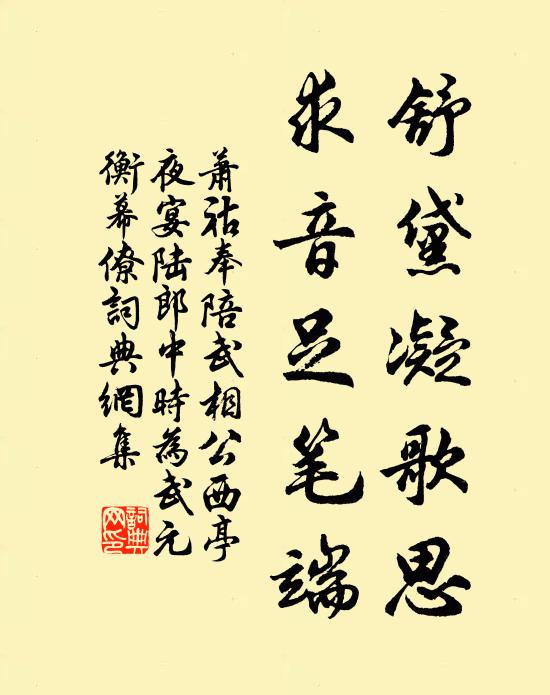 舒黛凝歌思
求音足笔端
萧祜奉陪武相公西亭
夜宴陆郎中時為武元
衡幕僚詞典網集
詞典网印